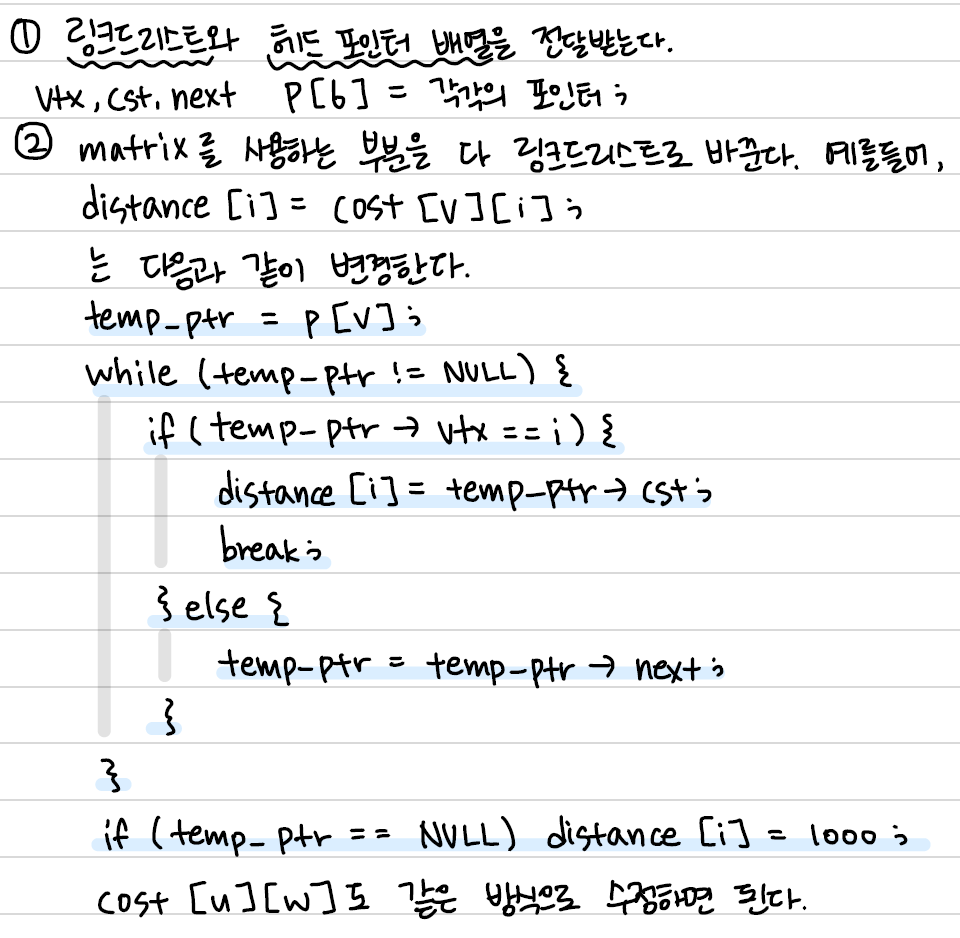 ① 링크드리스트와 헤드 포인터 배열을 전달받는다.
vtx, cst, next P[6] = 각각의 포인터;
② matrix를 사용하는 부분을 다 링크드리스트로 바꾼다. 예를들어,
distance [i] = cost [v][i];
는 다음과 같이 변경한다.
temp_ptr = p[v];
while (temp_ptr != NULL) {
if (temp_ptr → vtx == i) {
distance [i] = temp_ptr → cst;
break;
} else {
temp_ptr = temp_ptr → next;
}
}
if (temp_ptr == NULL) distance [i] = 1000;
cost [u][w]도 같은 방식으로 수정하면 된다.